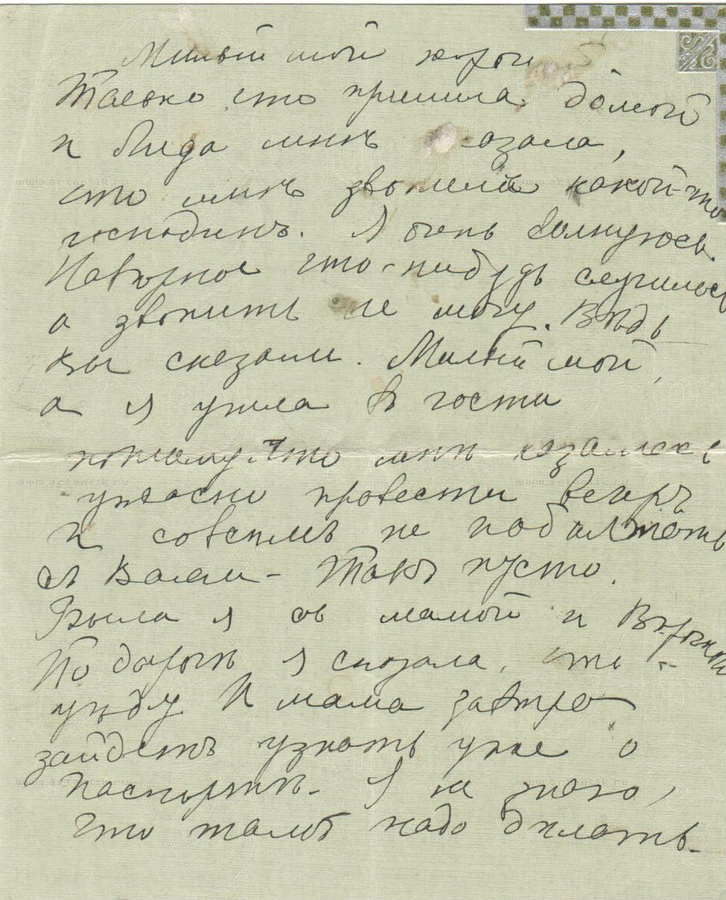 Милый мой хорош
Только что пришла домой
и Лида мнѣ сказала,
что мнѣ звонилъ какой-то
господинъ. Я очень волнуюсь.
Навѣрное что-нибудь случилось
а звонить не могу. Вѣдь
вы сказали. Милый мой,
а я ушла в гости
потому что мнѣ казалось
ужасно провести вечеръ
и совсѣмъ не поболтать
съ Вами - такъ пусто.
Была я съ мамой и Вѣрочкой
По дорогѣ я сказала, что
уѣду. И мама завтра
зайдетъ узнать уже о
паспортѣ. Я не знаю,
что тамъ надо дѣлать.